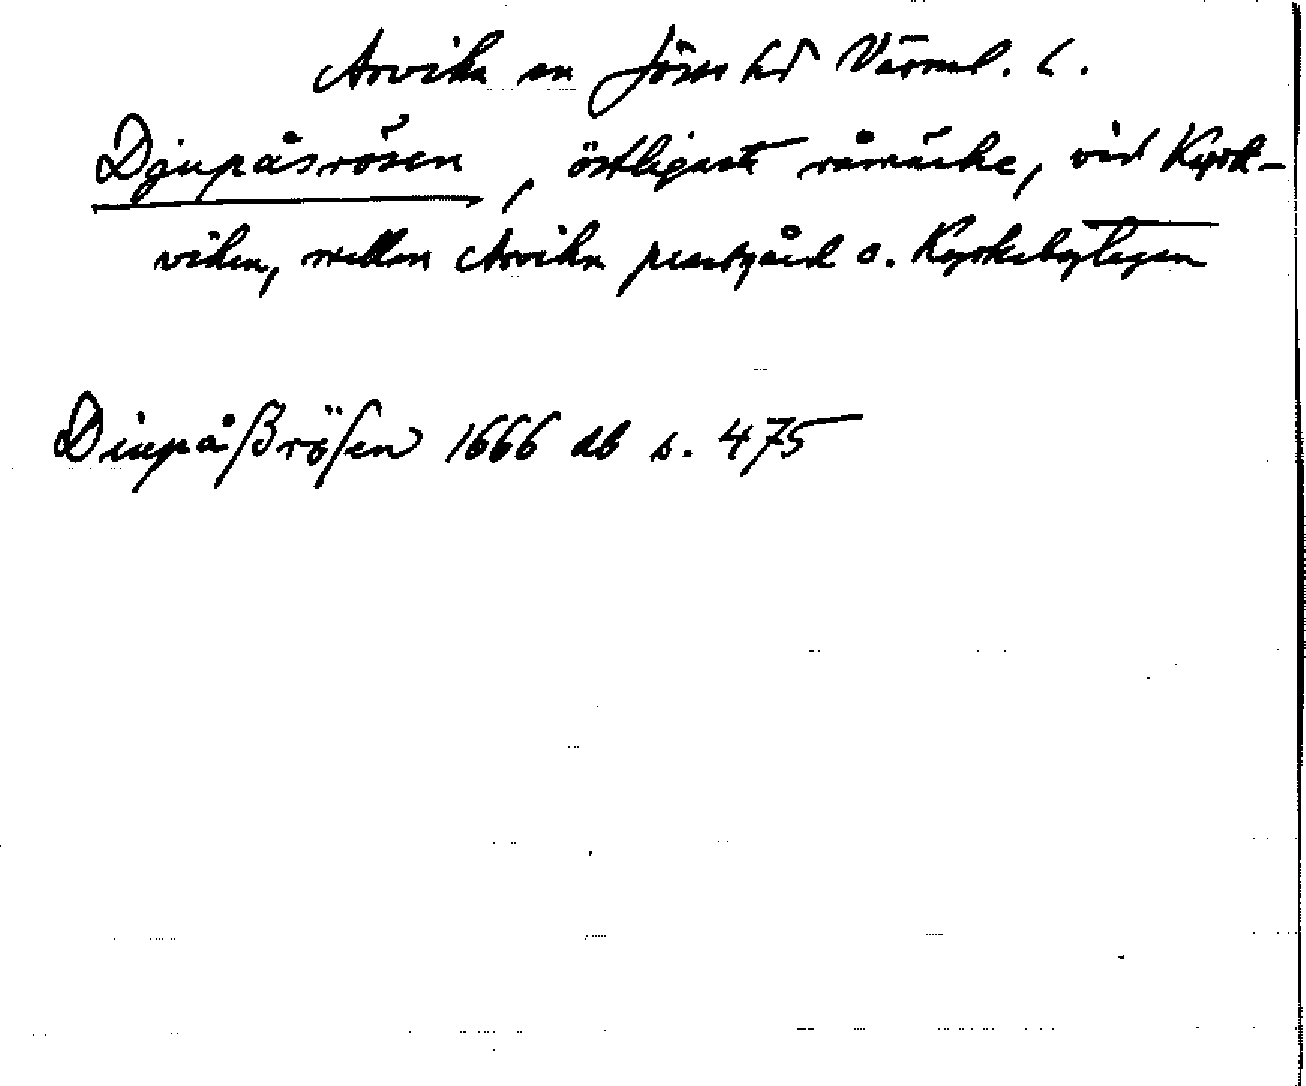 Arvika sn Jösse hd Värml. l.
Djupåsrösen, östligaste råmärke, vid Kyrk-
viken, mellan Arvika prästgård o. Kyrkebytegen
Diupåßrösen 1666 db s. 475